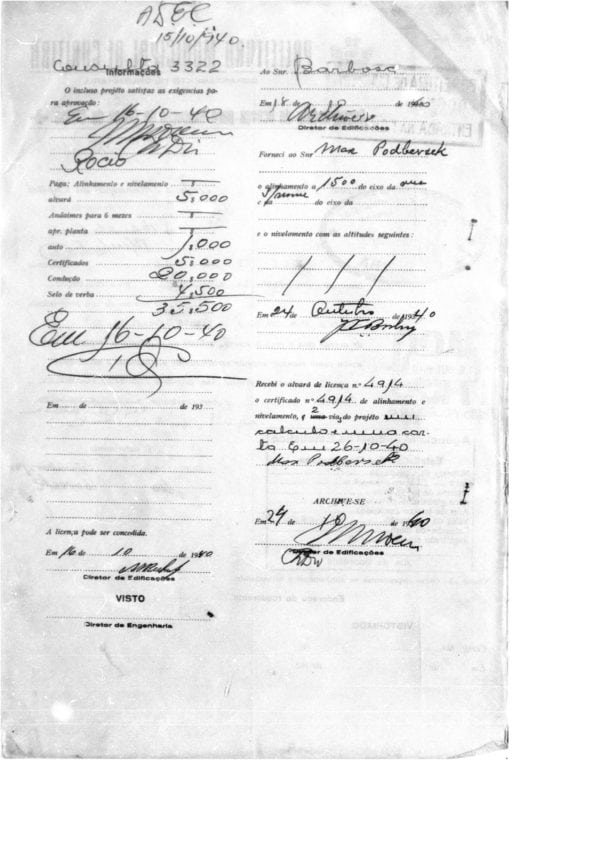 15/10/940.
Consulta 3322
Informações
O incluso projéto satisfaz as exigencias pa-
ra aprovação:
Em 16-10-40
Rocio
Paga: Alinhamento e nivelamento
alvará 5.000
Andáimes para 6 mezes
apr. planta
auto 1.000
Certificados 5.000
Condução 20.000
Selo de verba 4.500
35.500
Em 16-10-40
Em de de 193
A licença póde ser concedida.
Em 16 de 10 de 1940
Diretor de Edificações
VISTO
Diretor de Engenharia
Ao Snr. Barbosa
Em 18 de 10 de 1940
Diretor de Edificações
Forneci ao Snr Max Podbersek
o alinhamento a 1500 do eixo da rua
e a do eixo da
e o nivelamento com as altitudes seguintes:
/ / /
Em 24 de Outubro de 1940
Recebi o alvará de licença n.º 4914
o certificado n.º 4914 de alinhamento e
nivelamento, e 2 vias do projéto
calculo e uma car-
ta Em 26-10-40
Max Podbersek
ARCHIVE-SE
Em 29 de 10 de 1940
Diretor de Edificações